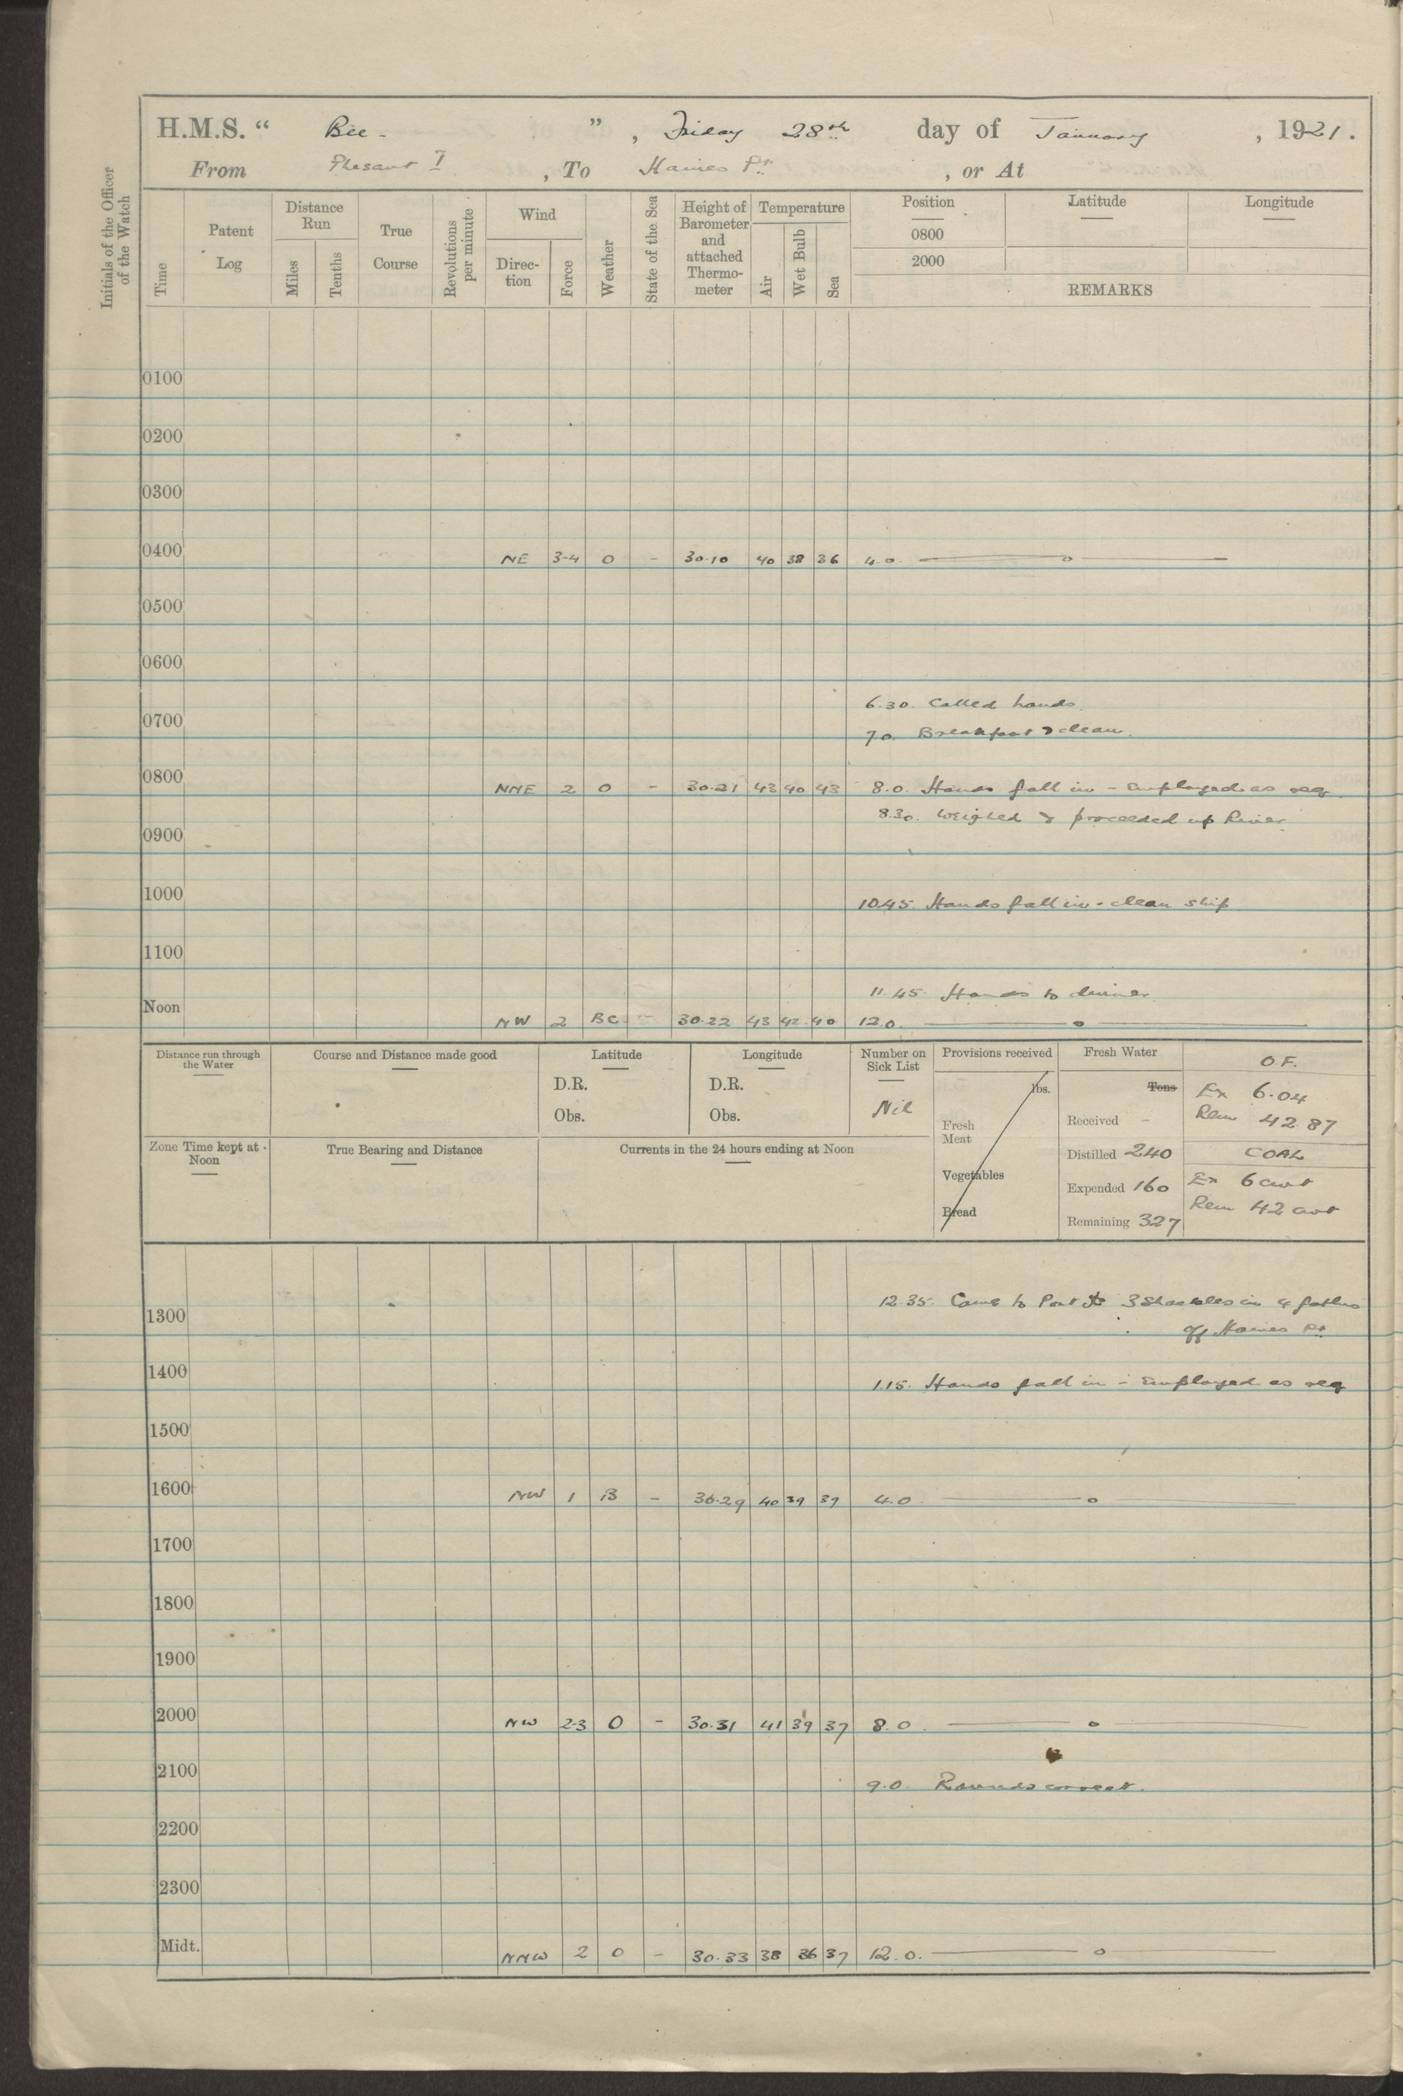 H.M.S. “ Bee - ” , Friday 28th day of January , 1921.
From Phesant I , To Haines Pt , or At
Initials of the Officer of the Watch
Time
Patent Log
Distance Run
Miles
Tenths
True Course
Revolutions per minute
Wind
Direc-tion
Force
Weather
State of the Sea
Height of Barometer and attached Thermo-meter
Temperature
Air
Wet Bulb
Sea
Position Latitude Longitude
0800
2000
REMARKS
0100
0200
0300
0400 NE 3-4 O - 30.10 40 38 36 4.0 o
0500
0600
6.30. Called hands.
0700
7.0. Breakfast & clean.
0800 NNE 2 O - 30.21 43 40 43 8.0. Hands fall in - Employed as req
8.30. Weighed & proceeded up River.
0900
1000
10.45 Hands fall in - clean ship
1100
11.45 Hands to dinner
Noon NW 2 BC - 30.22 43 42 40 12.0. o
Distance run through the Water
Course and Distance made good
Latitude
D.R.
Obs.
Longitude
D.R.
Obs.
Number on Sick List
Nil
Provisions received
lbs.
Fresh Meat
Vegetables
Bread
Fresh Water
Tons
Received -
Distilled 240
Expended 160
Remaining 327
O.F.
Ex 6.04
Rem 42.87
COAL
Ex 6 cwt
Rem 42 cwt
Zone Time kept at Noon
True Bearing and Distance
Currents in the 24 hours ending at Noon
12.35. Came to Port 3 Shackles in 4 fathms
1300
off Haines Pt.
1400
1.15. Hands fall in - Employed as req
1500
1600 NW 1 B - 30.29 40 39 37 4.0 o
1700
1800
1900
2000 NW 2-3 O - 30.31 41 39 37 8.0. o
2100
9.0. Rounds correct.
2200
2300
Midt. NNW 2 O - 30.33 38 36 37 12.0. o